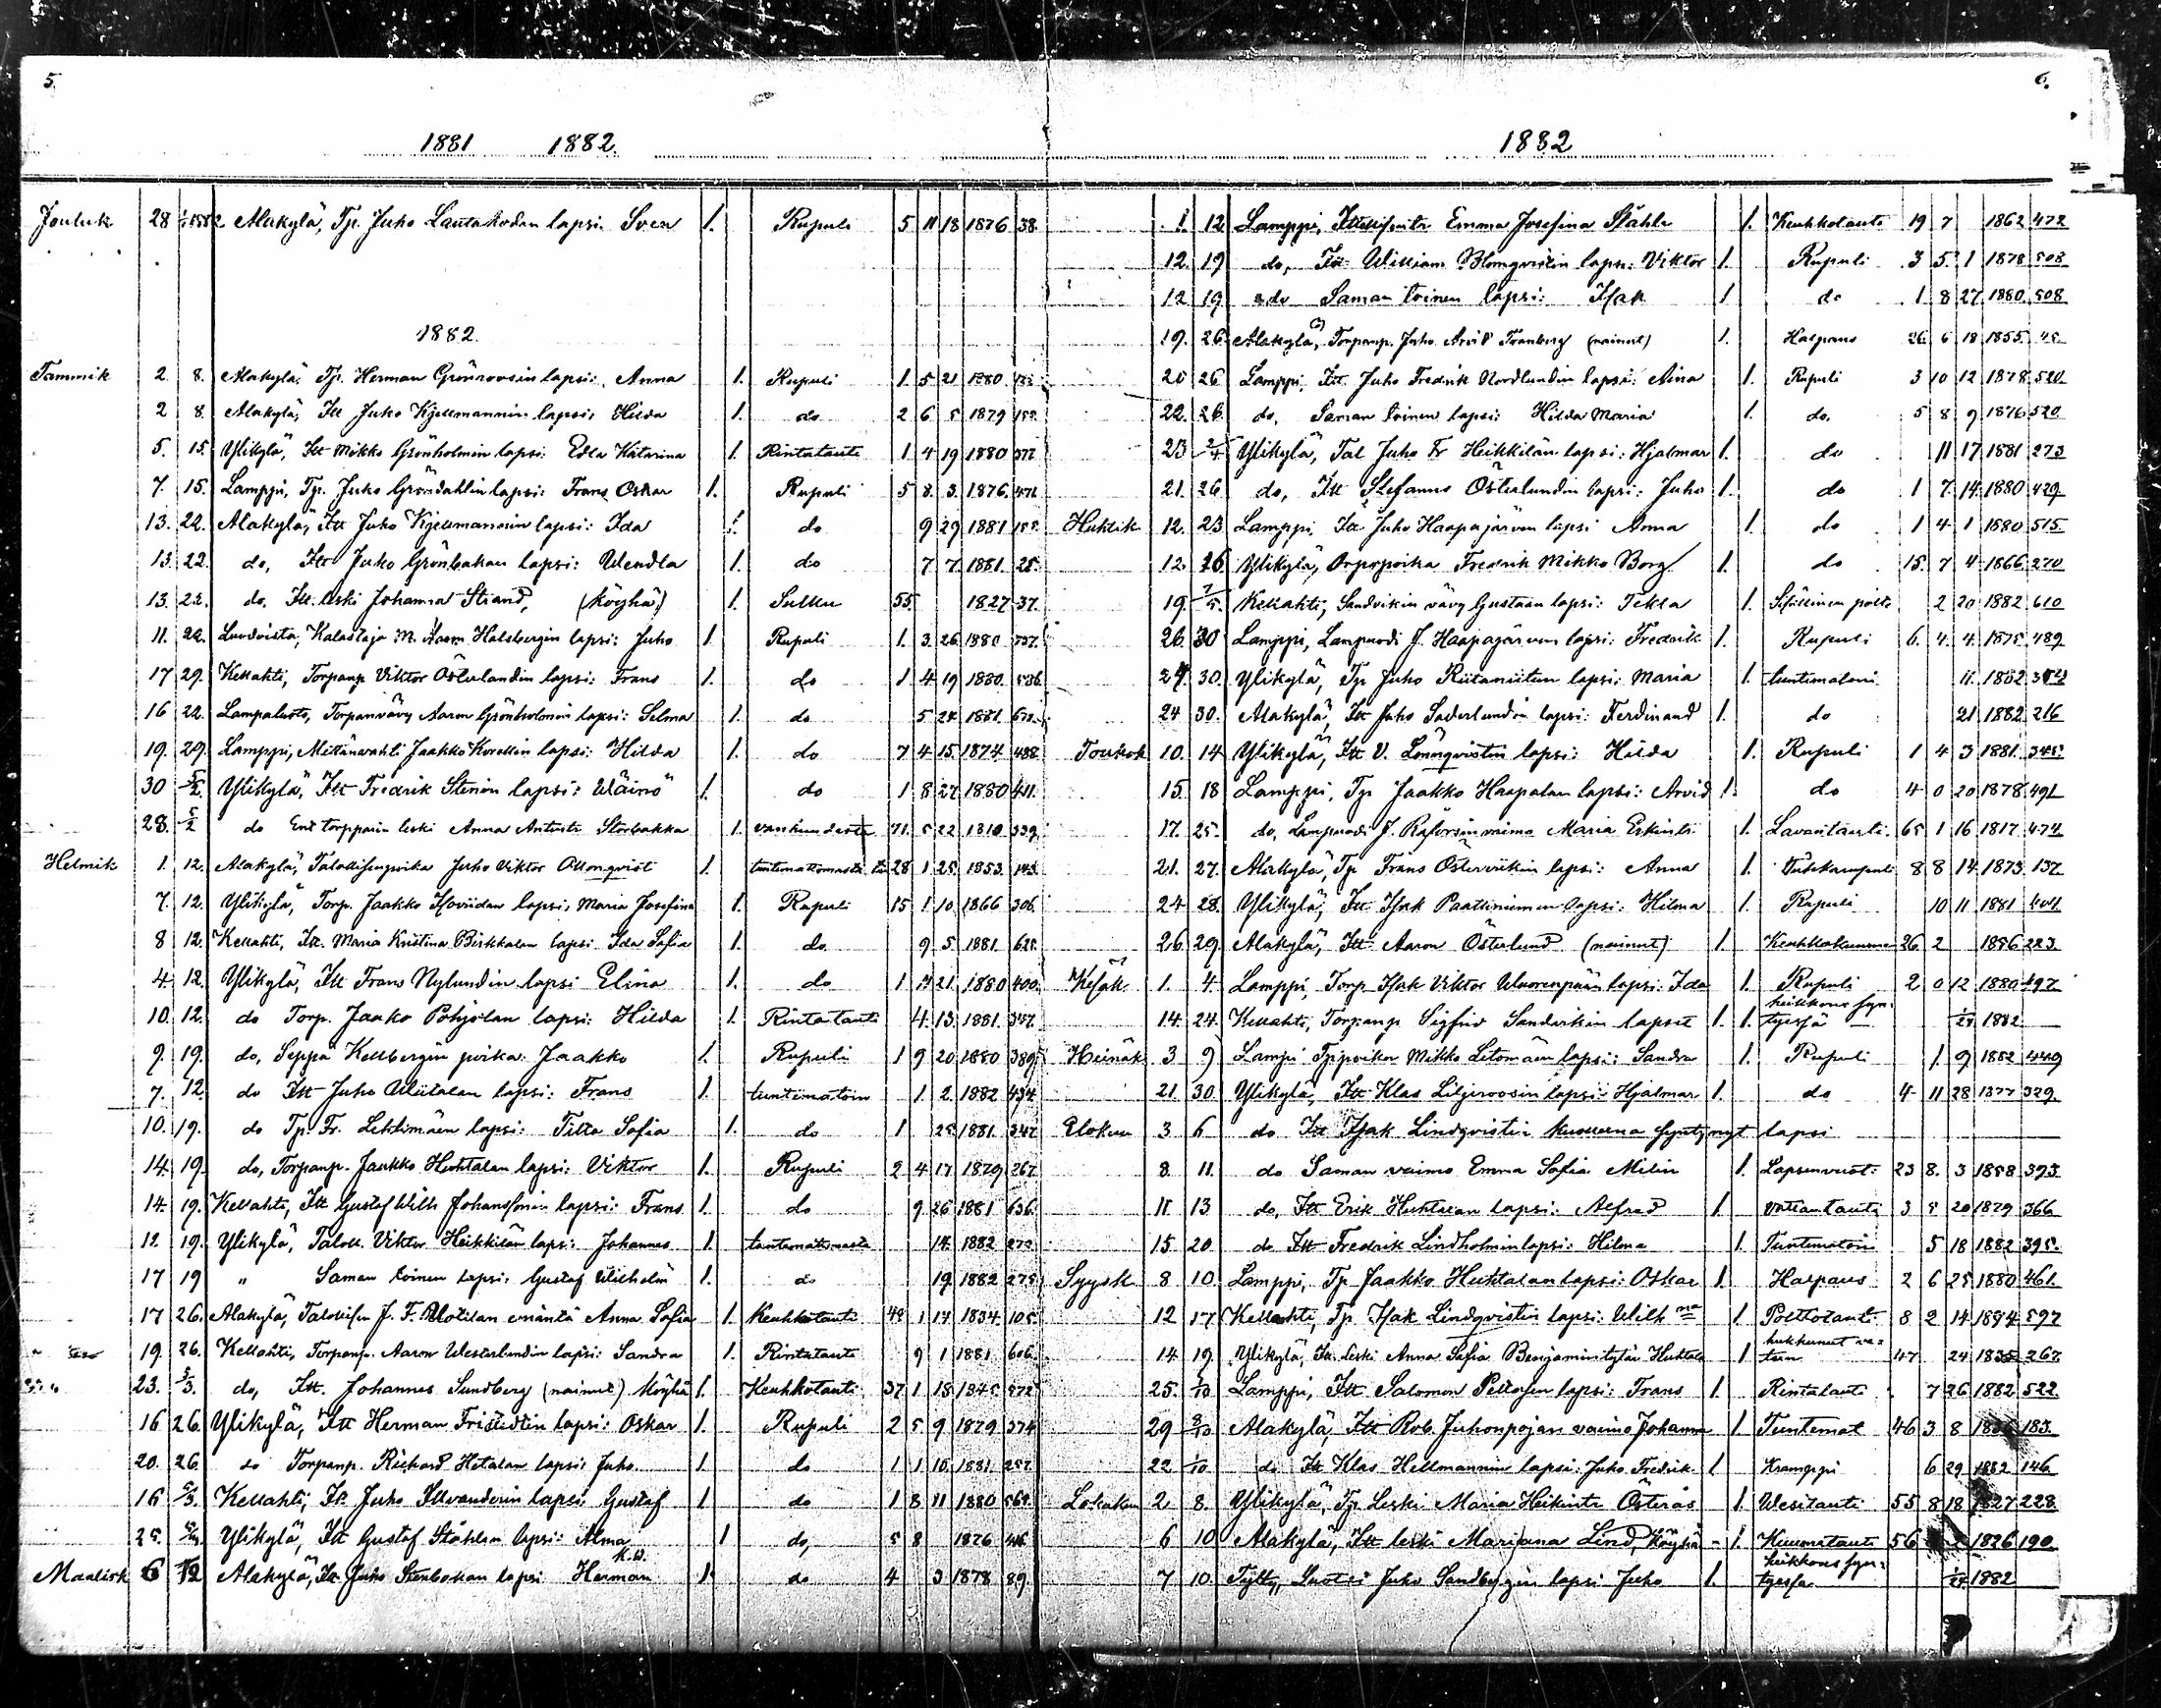 5.
1881 1882.
Jouluk 28 1/1 1882 Alakylä, Tp. Juho Lautakodan lapsi: Sven 1. Rupuli 5 11 18 1876 38.
1882.
Tammik 2 8. Alakylä, Tp. Herman Grönroosin lapsi: Anna 1. Rupuli 1 5 21 1880
2 8. Alakylä, Itt Juho Kjellmannin lapsi: Hilda 1. do 2 6 5 1879 158.
5. 15. Ylikylä, Itt Mikko Grönholmin lapsi: Edla Katarina 1. Rintatauti 1 4 19 1880 377.
7. 15. Lamppi, Tp. Juho Gröndahlin lapsi: Frans Oskar 1. Rupuli 5 8. 3. 1876 471
13. 22. Alakylä, Itt Juho Kjellmannin lapsi: Ida 1. do 9 29 1881 158.
13. 22. do, Itt Juho Grönbakan lapsi: Wendla 1. do 7 7 1881. 25.
13. 22. do. Itt. leski Johanna Strand, (köyhä) 1. Sulku 55. 1827 37.
11. 22. Luodoista, Kalastaja M. Aaron Halsbergin lapsi: Juho 1. Rupuli 1. 3. 26 1880 737.
17 29. Kellahti, Torpanp Viktor Österlundin lapsi: Frans 1. do 1 4 19 1880. 586
16 22. Lampaluoto, Torpanvävy Aaron Grönholmin lapsi: Selma 1. do 5 24 1881. 672.
19. 29. Lamppi, Mettänvahti Jaakko Korellin lapsi: Hilda 1. do 7 4 15. 1874. 488.
30 5/2. Ylikylä, Itt Fredrik Stenin lapsi: Wäinö 1. do 1 8 27 1880 411.
28. 5/2 do Ent torpparin leski Anna Antintr. Storbakka 1. vanhuudesta 71. 5 22 1810. 339.
Helmik 1. 12. Alakylä, Talollisenpoika Juho Viktor Blomqvist 1. tuntemattomasta 28 1 25. 1853. 143.
7. 12. Ylikylä, Torp. Jaakko Koviidan lapsi, Maria Josefina 1. Rupuli 15 1 10 1866 306.
8 12. Kellahti, Itt. Maria Kristina Birkkalan lapsi Ida Sofia 1. do. 9 5 1881. 625.
4. 12. Ylikylä, Itt Frans Nylundin lapsi Elina 1. do 1 7 21. 1880 400.
10. 12. do Torp. Jaako Pohjolan lapsi: Hilda 1. Rintatauti 4. 13. 1881. 347.
9. 19. do, Seppä Kellbergin poika: Jaakko 1. Rupuli 1 9 20 1880 389
7. 12. do Itt Juho Uusitalan lapsi: Frans 1. tuntimatoin 1. 2. 1882 434
10. 19. do Tp. Fr. Lehtimäen lapsi: Tilta Sofia 1. do 1 25 1881. 347.
14. 19. do, Torpanp. Jaakko Huhtalan lapsi: Viktor 1. Rupuli 2 4 17 1879 267.
14. 19. Kellahti, Itt Gustaf Wilh Johanssonin lapsi: Frans 1. do 9 26 1881 636.
12. 19. Ylikylä, Taloll. Viktor Heikkilän lapsi: Johannes 1. tuntemattomasta 14. 1882 273.
17 19 " Saman toinen lapsi: Gustaf Wilhelm 1. do 19. 1882 273.
17 26. Alakylä, Talollisen J. F. Uotilan emäntä Anna Sofia 1. Keuhkotauti 48 1 14 1834. 105.
19. 26. Kellahti, Torpanp. Aaron Westerlundin lapsi: Sandra 1. Rintatauti 9 1 1881 606.
23. 5/3. do, Itt. Johannes Sundberg (nainut) Köyhä 1. Keuhkotauti 37 1 18 1845. 572.
16 26. Ylikylä, Itt Herman Fristedtin lapsi: Oskar 1. Rupuli 2 5 9 1879 374
20. 26. do Torpanp. Rickard Hotalan lapsi: Juho. 1. do 1 1 10. 1881. 257.
16 5/3. Kellahti, Itt. Juho Illvanderin lapsi Gustaf 1 do 1 8 11 1880 569.
25. 5/3. Ylikylä, Itt Gustaf Ståhlen lapsi: Alma 1 do, 5 8 1876 416
Maalisk 6 12 Alakylä, Itt Juho Stenbakan lapsi Herman K.W. 1. do 4 3 1878 89.
6.
1882
1. 12. Lamppi, Itsellisentr Emma Josefina Ståhle 1. Keuhkotauti 19 7 1862 472
12. 19 do, Itt William Blomqvistin lapsi: Viktor 1. Rupuli 3 5. 1 1878 508
12 19 do Saman toinen lapsi: Isak 1 do 1 8 27 1880. 508
19. 26. Alakylä, Torpanp. Juho Arvid Tranberg (nainut) 1. Halpaus 26 6 18 1855. 45.
20 26 Lamppi, Itt. Juho Fredrik Nordlundin lapsi: Aina 1. Rupuli 3 10 12 1878 520.
22. 26. do, Saman toinen lapsi: Hilda Maria 1. do. 5 8 9 1876 520
23 2/4 Ylikylä, Tal Juho Fr Heikkilän lapsi: Hjalmar 1. do 11 17 1881 273
21. 26. do, Itt Stefanus Österlundin lapsi: Juho 1. do 1 7. 14. 1880 429
Huhtik 12. 23 Lamppi, Itt Juho Haapajärven lapsi Anna 1. do 1 4 1 1880 515.
12. 26 Ylikylä, Orpopoika Fredrik Mikko Borg. 1. do 15. 7 4 1866. 270
19. 7/5. Kellahti, Sandvikin vävy Gustaan lapsi: Tekla 1. Sisällinen polte 2 20 1882 610
26. 30 Lamppi, Lampuodi J. Haapajärven lapsi: Fredrik 1. Rupuli 6. 4. 4. 1875. 489.
24. 30. Ylikylä, Tp Juho Riitamiitun lapsi: Maria 1. tuntimatoin 11. 1882
24 30. Alakylä, Itt Juho Söderlundin lapsi: Ferdinand 1. do 21 1882 216
Toukok 10. 14 Ylikylä, Itt V. Lönnqvistin lapsi: Hilda 1. Rupuli 1 4 3 1881. 345.
15. 18 Lamppi, Tp Jaakko Haapalan lapsi: Arvid 1. do 4 0 20 1878. 491
17. 25. do, Lampuodi J. Raforsin vaimo Maria Erkintr 1. Lavantauti. 65 1 16 1817 474
21. 27. Alakylä, Tp Frans Östervikin lapsi: Anna 1. Tuhkarupuli 8 8 14. 1873. 137.
24 28. Ylikylä, Itt Isak Paattiniemen lapsi: Hilma 1. Rupuli 10 11 1881 401
26. 29. Alakylä, Itt. Aaron Österlund (nainut) 1. Keuhkokuume 26 2 1856 223.
Kesäk 1. 4. Lamppi, Torp Isak Viktor Wuorenpään lapsi: Ida 1. Rupuli 2 0 12 1880 497
14. 24. Kellahti, Torpanp Sigfrid Sandvikin lapset 1. 1. heikkous syntyessä 1/24 1882
Heinäk 3 9 Lampi Tp:poikan Mikko Letomäen lapsi: Sandra 1. Rupuli 1. 9 1882 449
21. 30. Ylikylä, Itt Klas Liljeroosin lapsi: Hjalmar 1. do 4 11 28 1877 329.
Elokuu 3 6 do Itt Isak Lindqvistin kuolleena syntynyt lapsi
8. 11. do Saman vaimo Emma Sofia Milin 1. Lapsenvuot: 23 8. 3 1858 393.
11. 13 do, Itt Erik Huhtalan lapsi: Alfred 1. vattantauti 3 5 20 1879 366
15. 20. do Itt Fredrik Lindholmin lapsi: Hilma 1. Tuntimatoin 5 18 1882 395.
Syysk 8 10. Lamppi, Tp Jaakko Huhtalan lapsi: Oskar 1. Halpaus 2 6 25 1880 461
12 17 Kellahti, Tp Isak Lindqvistin lapsi: Wilhna 1 Polttotauti 8 2 14 597
14. 19. Ylikylä, Itt. Leski Anna Sofia Benjamintytär Huhtala 1 hukkunut veteen 47 24 1835 267
25. 1/10 Lamppi, Itt Salomon Peltosen lapsi: Frans 1. Rintatauti 7 26 1882 522
29 8/10 Alakylä, Itt Rob. Juhonpojan vaimo Johanna 1. Tuntemat 46 3 8 183.
22 1/10 do Itt Klas Hellmannin lapsi: Juho Fredrik 1 Kramppi 6 29 1882 146
Lokakuu 2 8. Ylikylä, Tp Leski Maria Heikintr Österås 1. Wesitauti 55 8 18 1827 228
6 10 Alakylä, Itt leski Marijana Lind, Köyhä 1. Kuumetauti 56 1826 190.
7 10. Tytty, Luotsi Juho Sandbergin lapsi Juho 1. heikkous syntyessä 1/24 1882